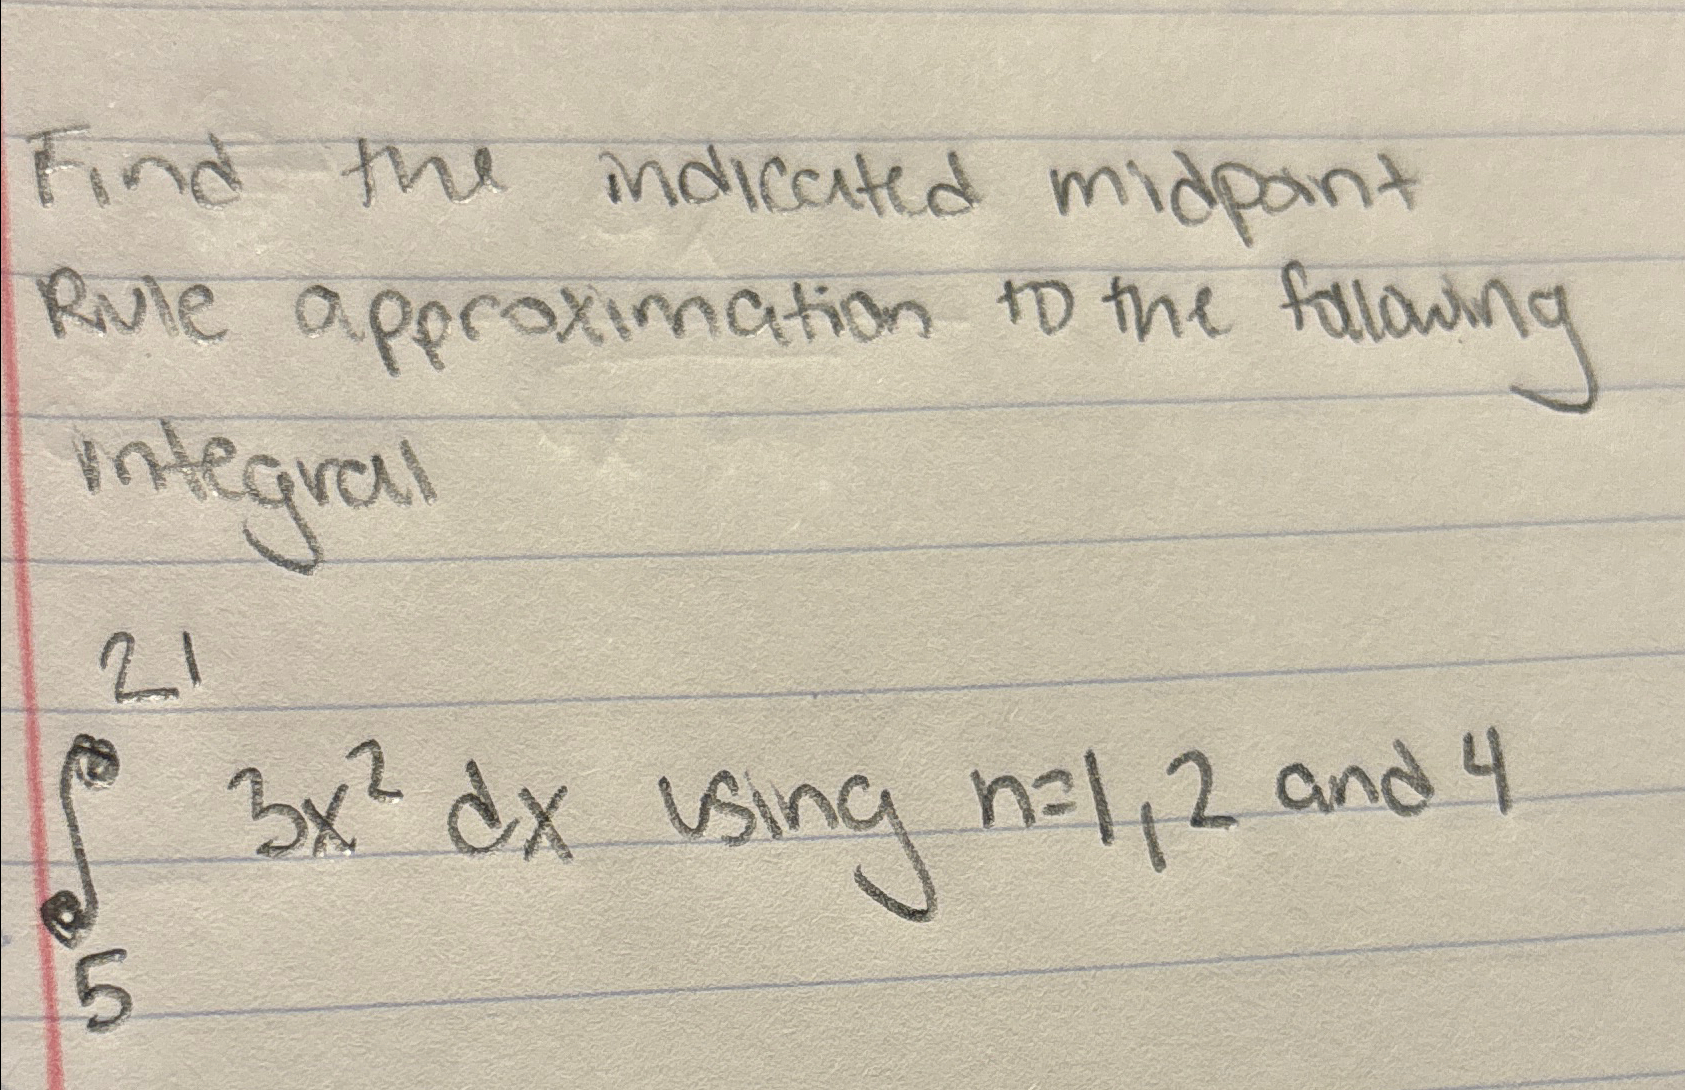 Find the indicated midpoint
Rule approximation to the following
integral
21
∫ 3x² dx using n=1, 2 and 4
5